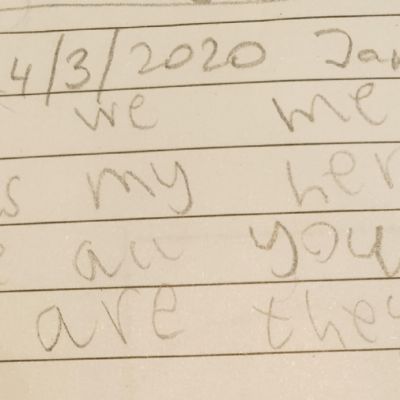 4/3/2020 Jan
we me
s my her
e all you
are they